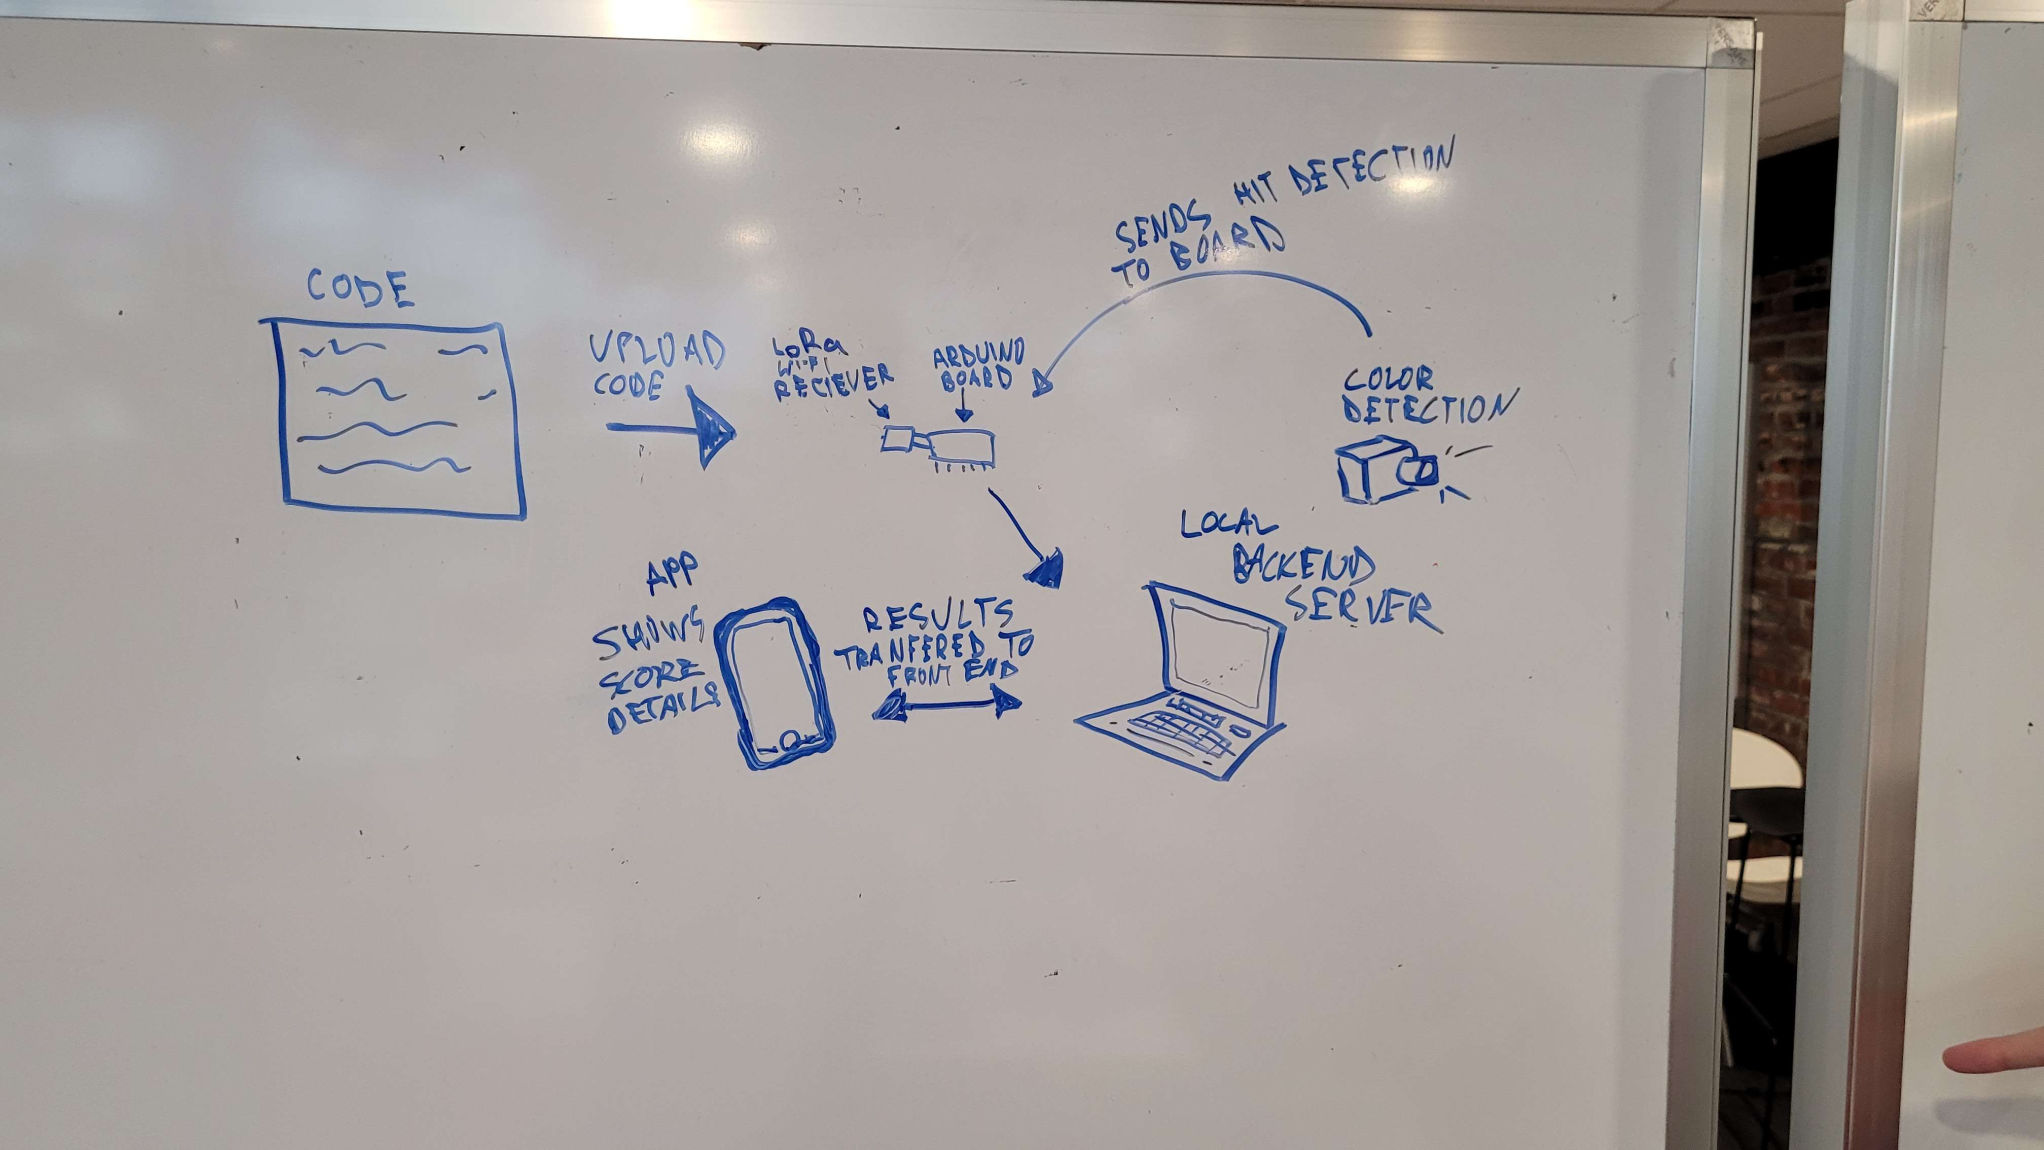 CODE
UPLOAD
CODE
LoRa
WI-FI
RECIEVER
ARDUINO
BOARD
SENDS HIT DETECTION
TO BOARD
COLOR
DETECTION
LOCAL
BACKEND
SERVER
RESULTS
TRANFERED TO
FRONT END
APP
SHOWS
SCORE
DETAILS